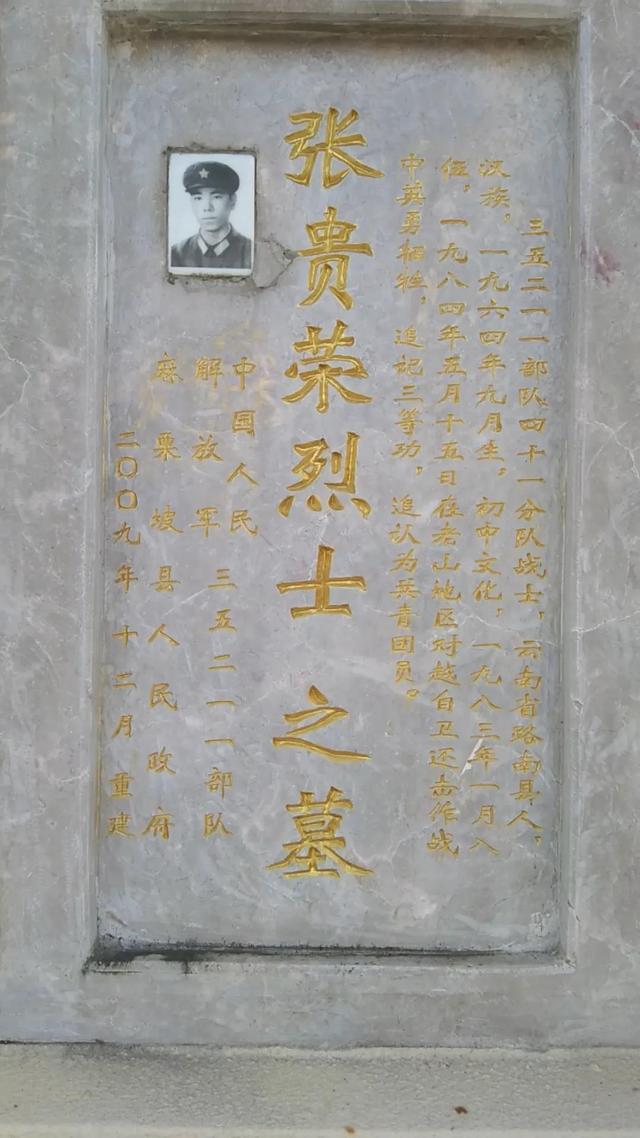 三五二一一部队四十一分队战士，云南省路南县人，
汉族，一九六四年九月生，初中文化，一九八三年一月入
伍，一九八四年五月十五日在老山地区对越自卫还击作战
中英勇牺牲，追记三等功，追认为共青团员。
张贵荣烈士之墓
中国人民
解放军三五二一一部队
麻栗坡县人民政府
二〇〇九年十二月重建